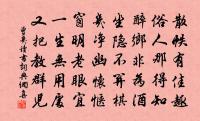 散帙有佳趣
俗人那得知
醉鄉非為酒
坐隱不棋
淨幽懷愜
窗明老眼宜
一生無用處
又把教群兒
曾幾讀書詞典網